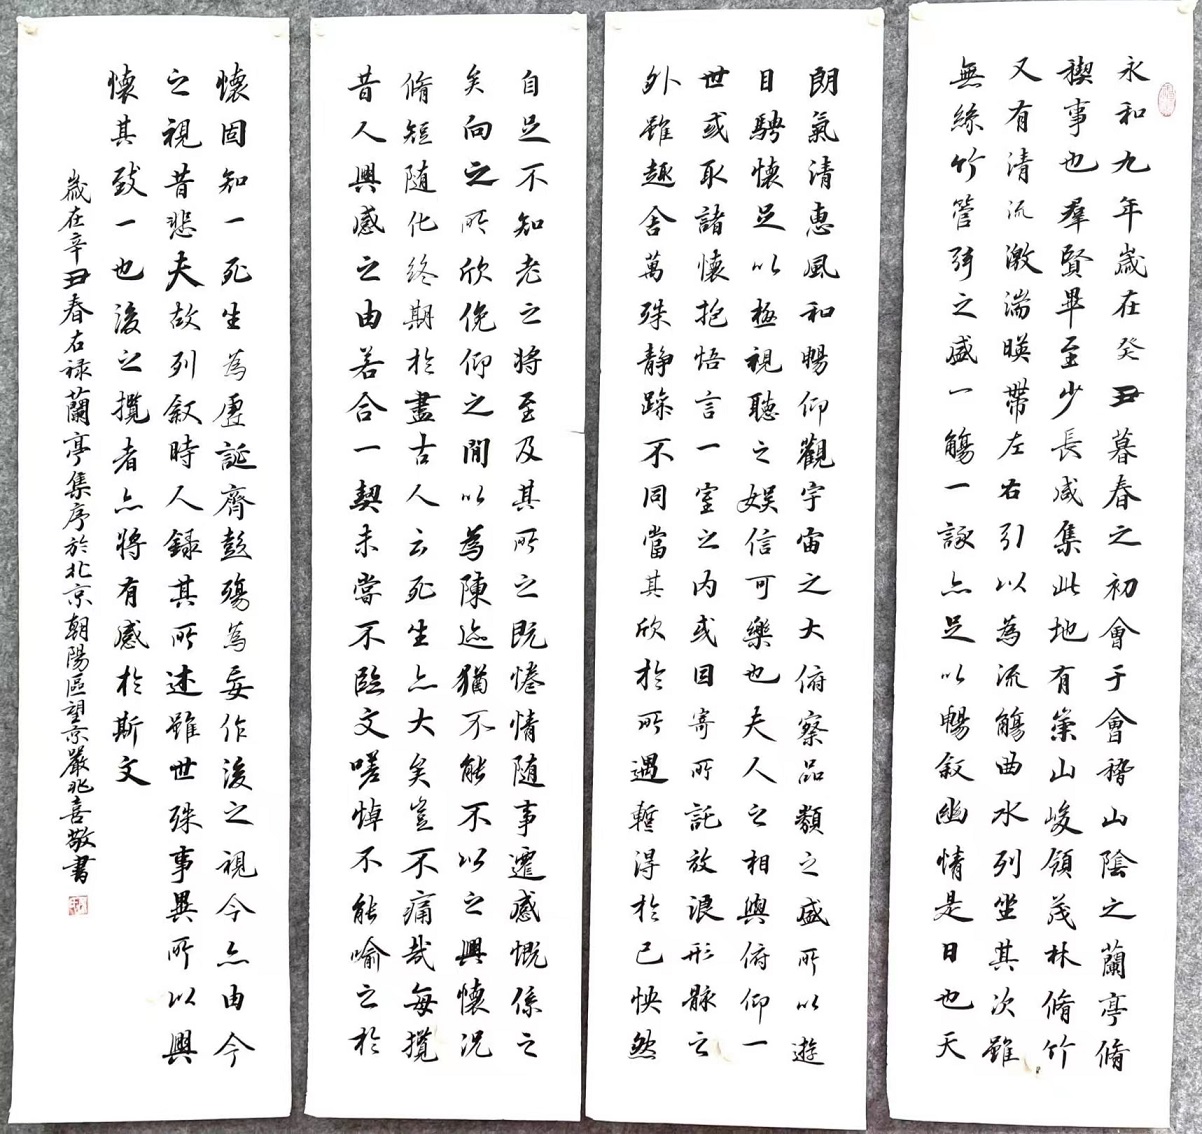 永和九年歲在癸丑暮春之初會于會稽山陰之蘭亭脩
禊事也羣賢畢至少長咸集此地有崇山峻領茂林脩竹
又有清流激湍暎帶左右引以為流觴曲水列坐其次雖
無絲竹管弦之盛一觴一詠亦足以暢叙幽情是日也天
朗氣清惠風和暢仰觀宇宙之大俯察品類之盛所以遊
目騁懷足以極視聽之娛信可樂也夫人之相與俯仰一
世或取諸懷抱悟言一室之内或因寄所託放浪形骸之
外雖趣舍萬殊静躁不同當其欣於所遇暫得於己怏然
自足不知老之將至及其所之既惓情随事遷感慨係之
矣向之所欣俛仰之間以為陳迹猶不能不以之興懷況
脩短随化終期於盡古人云死生亦大矣豈不痛哉每攬
昔人興感之由若合一契未嘗不臨文嗟悼不能喻之於
懷固知一死生為虛誕齊彭殤為妄作後之視今亦由今
之視昔悲夫故列叙時人録其所述雖世殊事異所以興
懷其致一也後之攬者亦將有感於斯文
歲在辛丑春右禄蘭亭集序於北京朝陽區望京嚴兆喜敬書